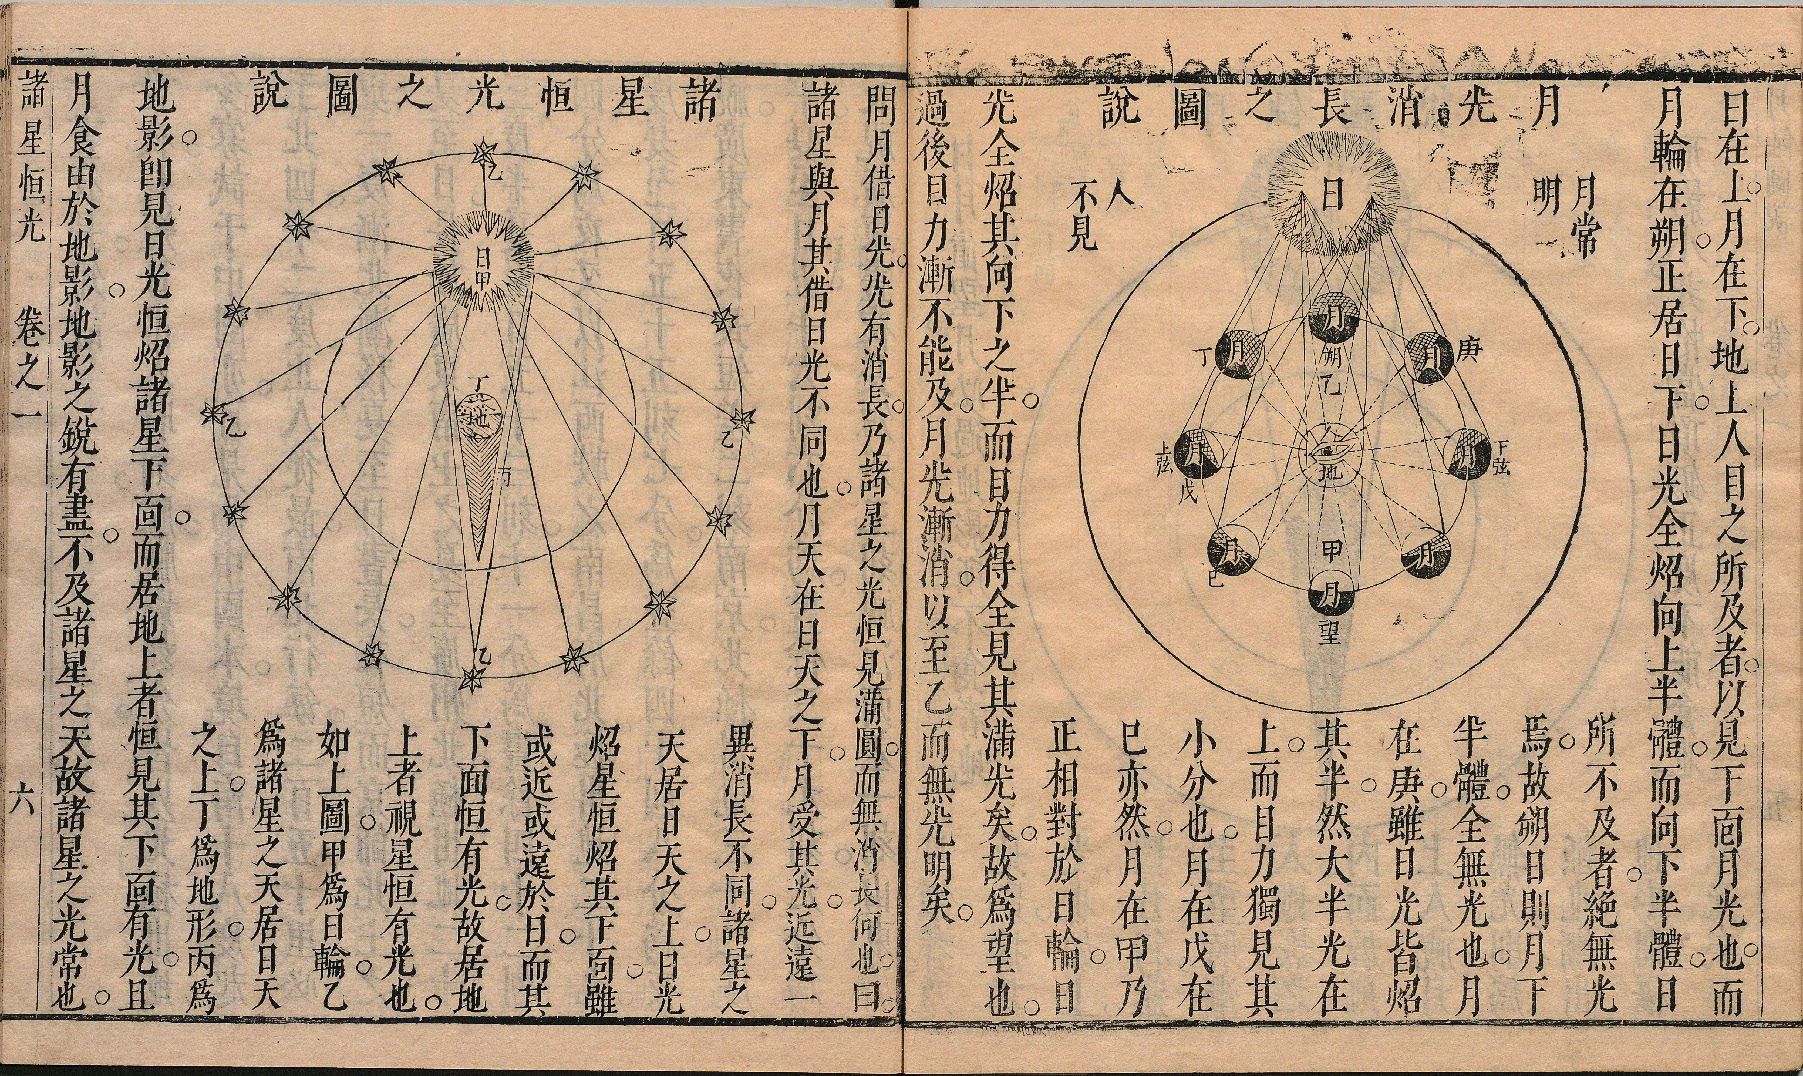 日在上月在下地上人目之所及者以見下面月光也而
月輪在朔正居日下日光全炤向上半體而向下半體日
月光消長之圖說
月常
明
人
不見
日
月
朔
乙
月
丁
月
庚
月
上弦
戊
月
下弦
地
月
己
月
甲
月
望
所不及者絕無光
焉故朔日則月下
半體全無光也月
在庚雖日光皆炤
其半然大半光在
上而日力獨見其
小分也月在戊在
已亦然月在甲乃
正相對於日輪日
光全炤其向下之半而日力得全見其滿光矣故爲望也
過後日力漸不能及月光漸消以至乙而無光明矣
問月借日光光有消長乃諸星之光恒見滿圓而無消長何也曰
諸星與月其借日光不同也月天在日天之下月受其光近遠一
諸星恒光之圖說
乙
日
甲
丁
地
丙
乙
乙
乙
異消長不同諸星之
天居日天之上日光
炤星恒炤其下面雖
或近或遠於日而其
下面恒有光故居地
上者視星恒有光也
如上圖甲爲日輪乙
爲諸星之天居日天
之上丁爲地形丙爲
地影卽見日光恒炤諸星下面而居地上者恒見其下面有光且
月食由於地影地影之銳有盡不及諸星之天故諸星之光常也
諸星恒光 卷之一 六